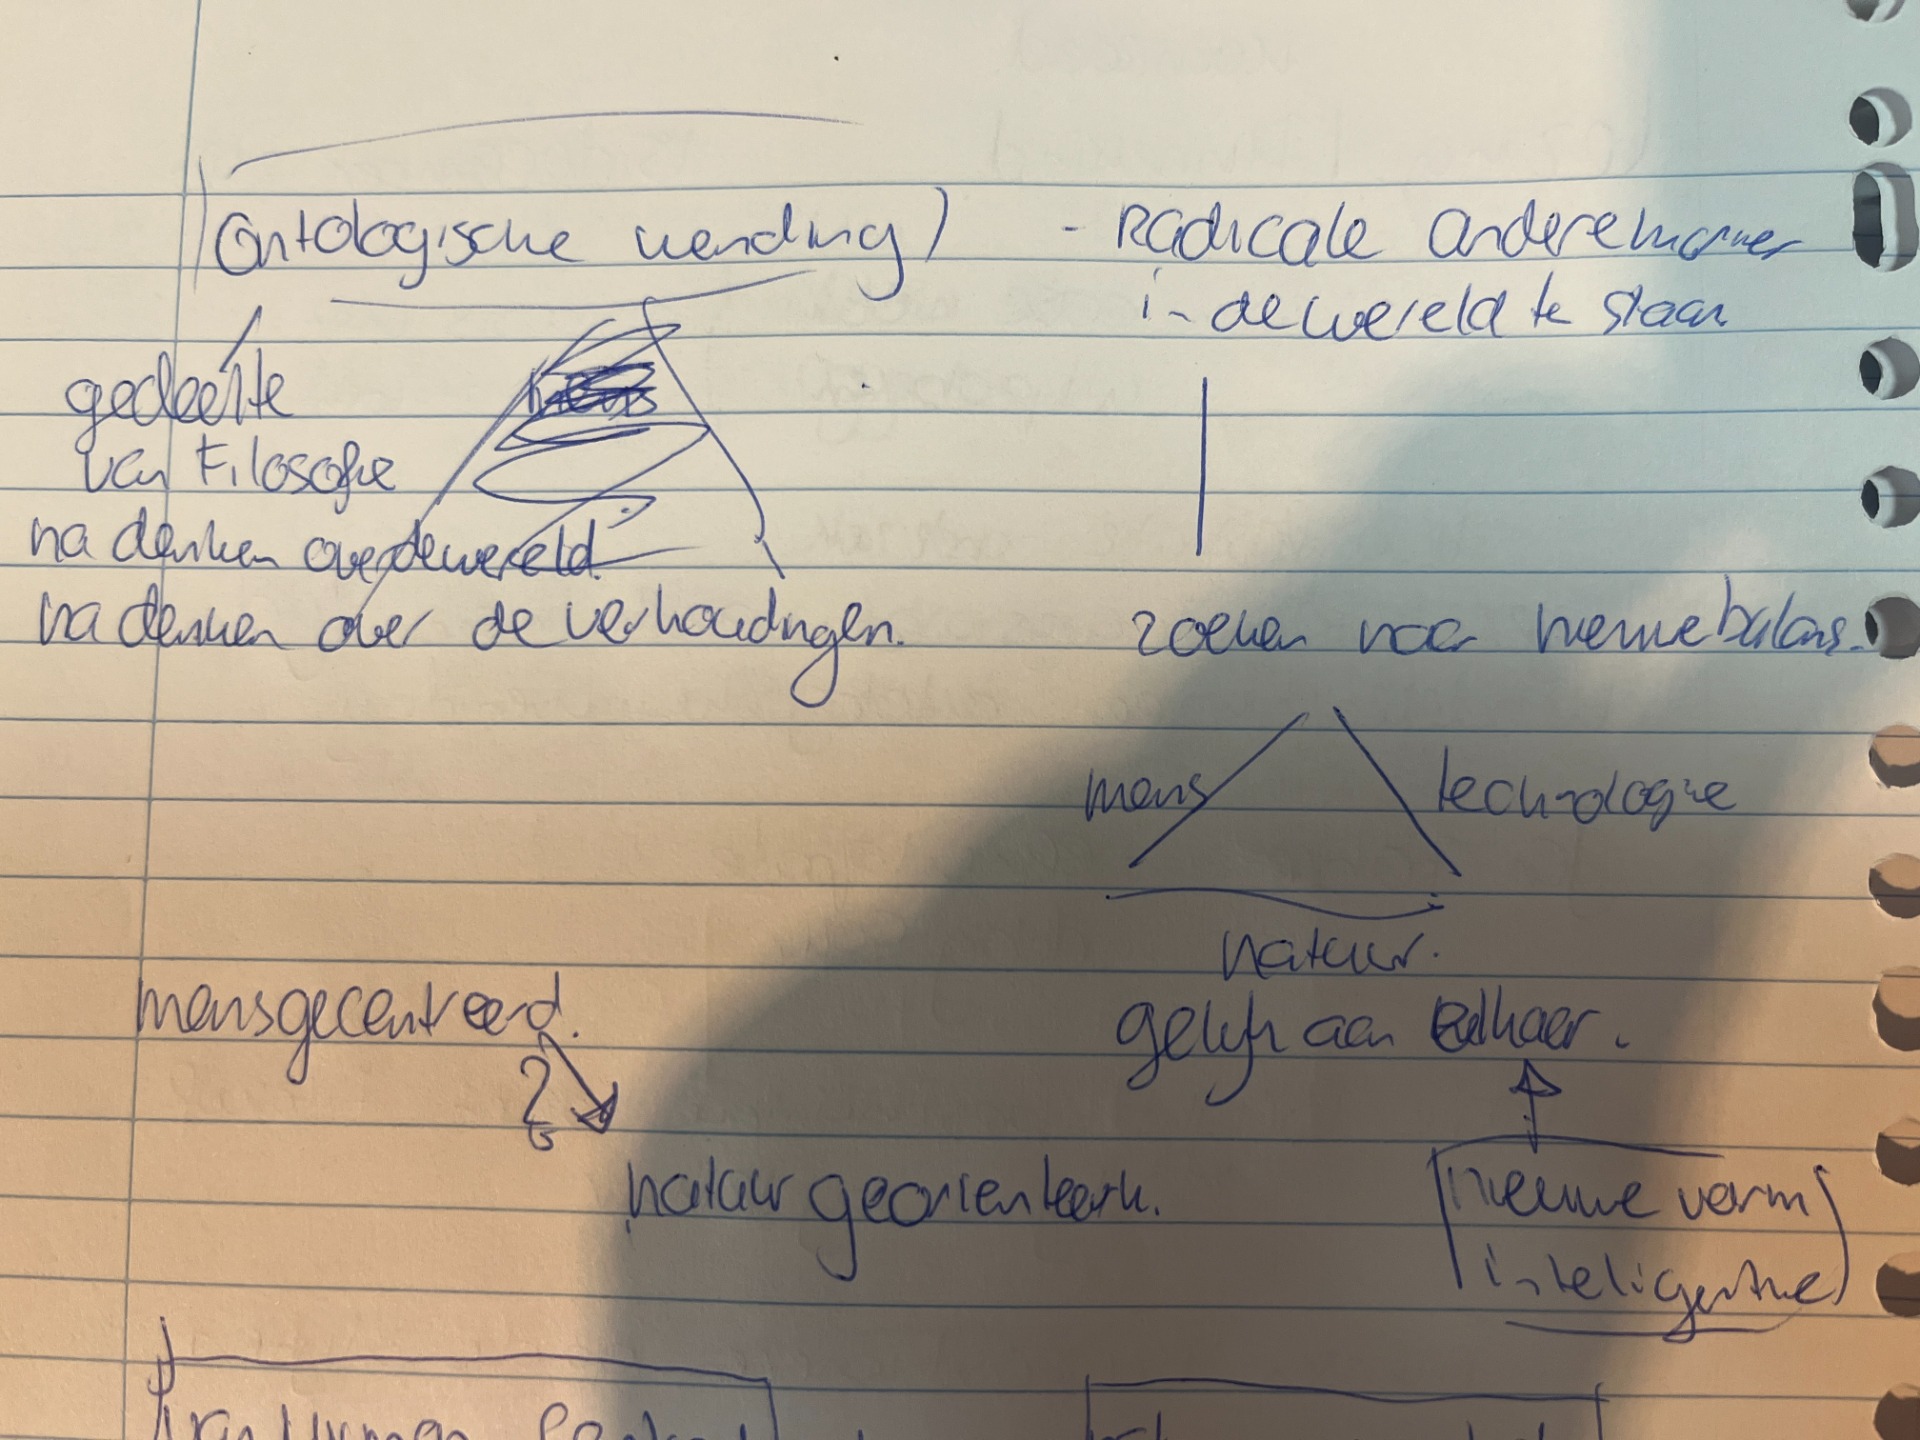 (Ontologische wending)
- Radicale andere manier
in de wereld te staan
gedeelte
van Filosofie
na denken over de wereld.
na denken over de verhoudingen.
zoeken naar nieuwe balans.
mens
technologie
natuur.
gelijk aan elkaar.
mensgecentreerd.
natuur georienteerd.
nieuwe vorm
inteligentie
van Human